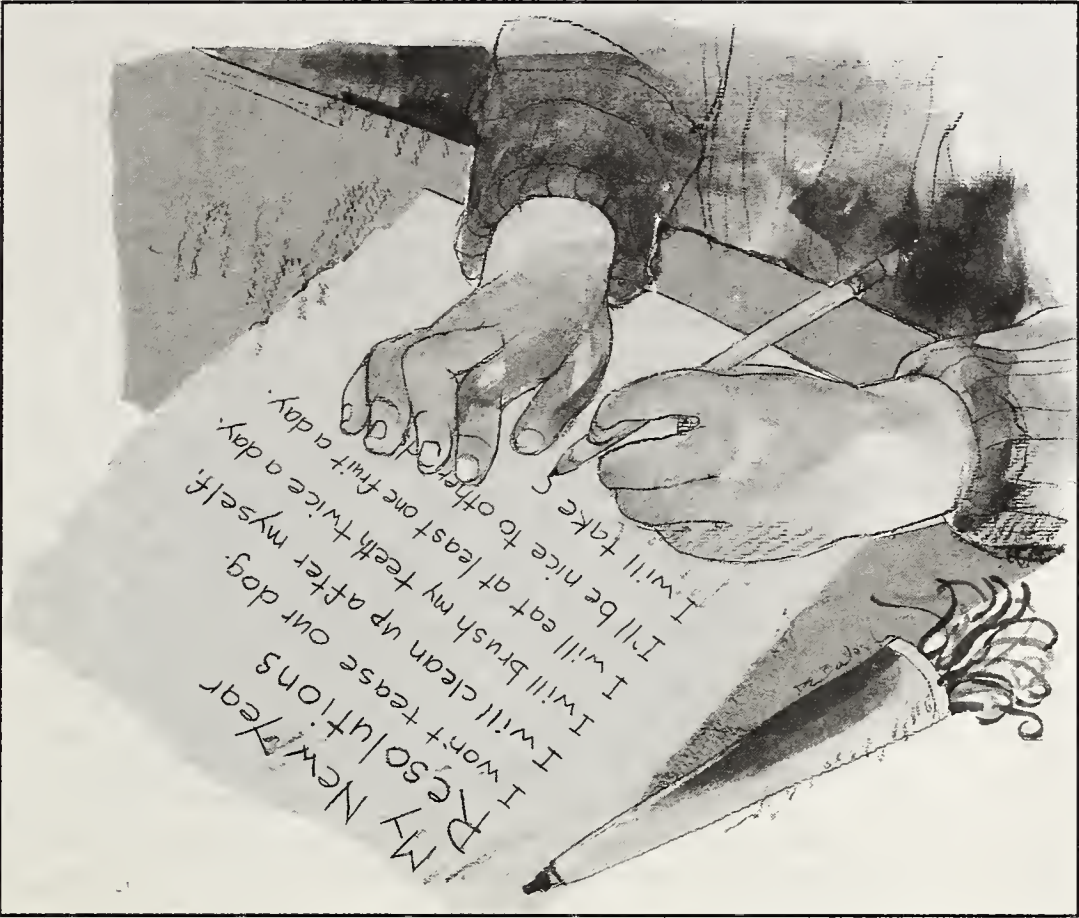 My New Year
Resolutions
I won't tease our dog.
I will clean up after myself.
I will brush my teeth twice a day.
I will eat at least one fruit a day.
I'll be nice to other
I will take c